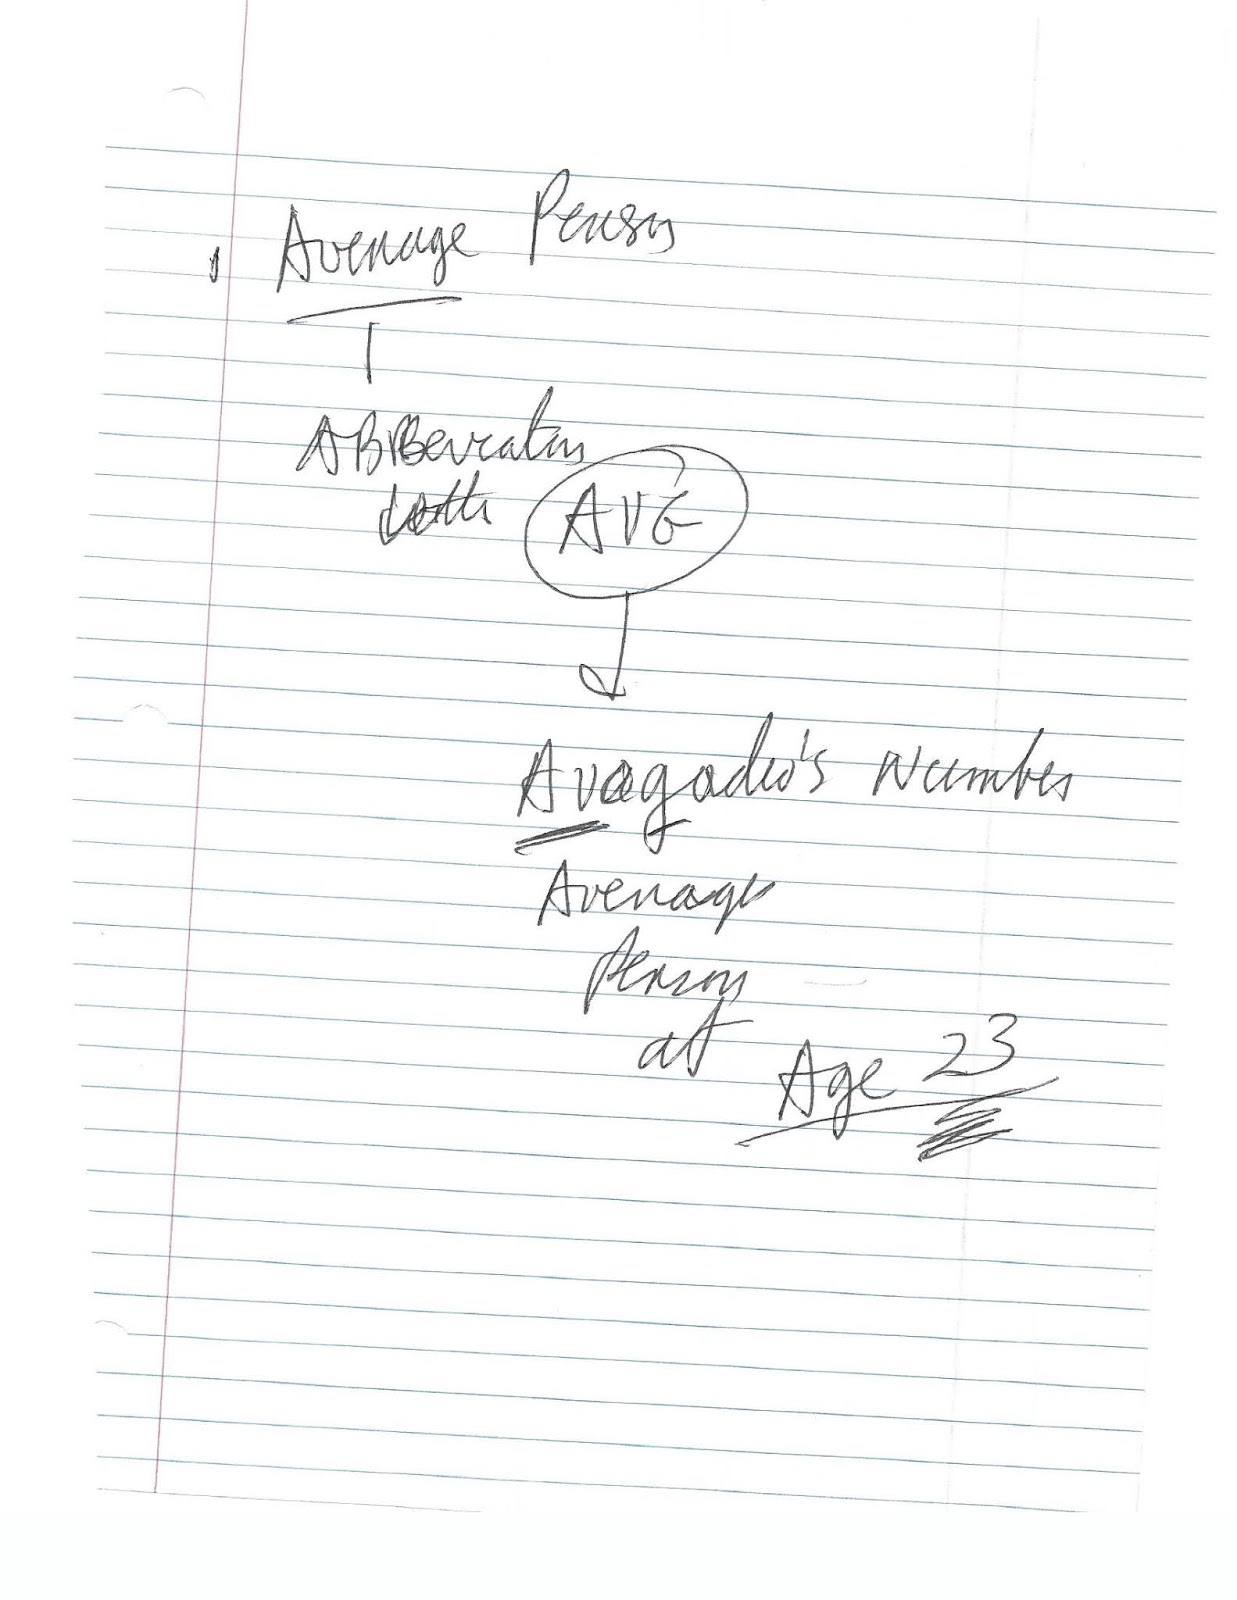 Average Person
ABBBevratin
with AVG
Avagadro's Number
Average
Person
at
Age 23